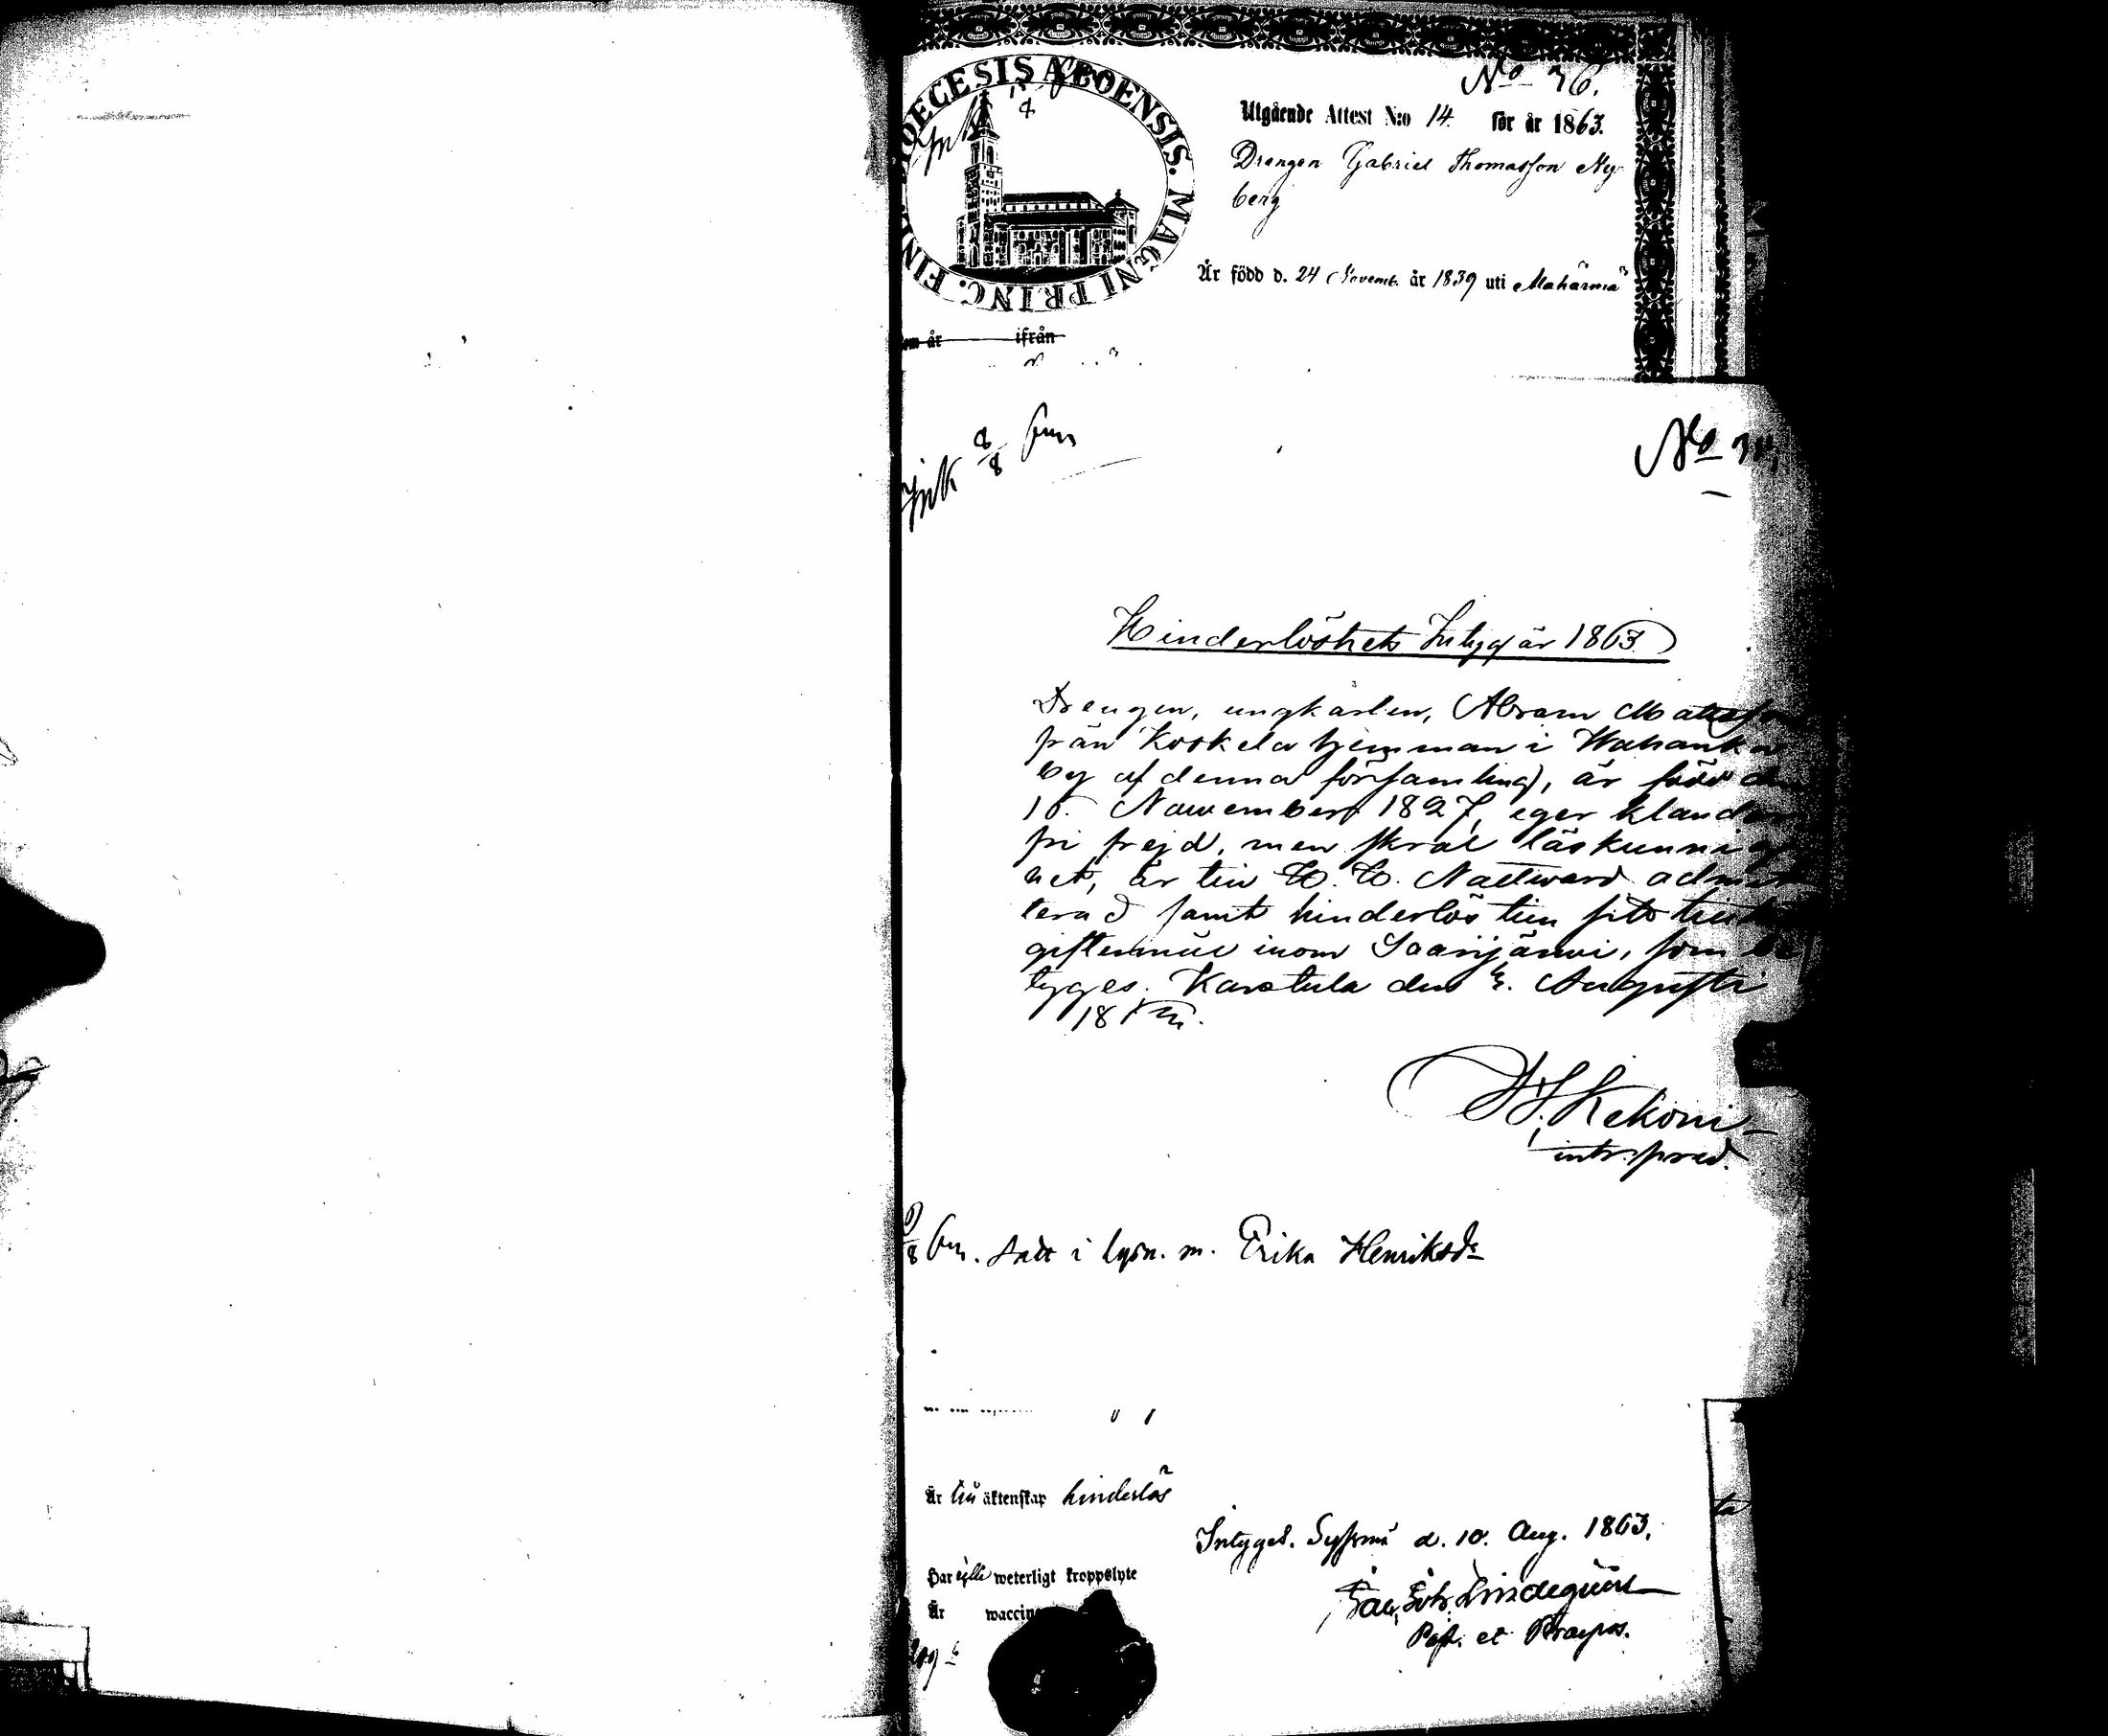 DIOECESIS ABOENSIS. MAGNI PRINC. FINL
No 36.
Utgående Attest N:o 14. för år 1863.
Drengen Gabriel Thomasson Ny-
berg
Är född d. 24 Novemb. år 1839 uti Mahärmä
om år ifrån
Ink 8/8
No
Hinderlöshets Intyg år 1863
Drengen, ungkarlen, Abram Matsson
från Koskela hemman i Wahanka
by af denna församling, är född den
Nowember 1827, eger klander
fri frejd, men skral läskunnig
het, är till H. H. Nattward admit
terad samt hinderlös till sitt
giftermål inom Saarijärvi, som be
tyges. Karstula den Augusti
18
Kekoni
intr. pred.
i lysn. m. Erika Henriksdr
Är till äktenskap hinderlös
Intygas. Sysmä d. 10. Aug. 1863.
Har weterligt kroppslyte
Lindequist
Är waccin
Past. et Praepos.